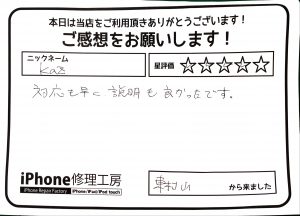 本日は当店をご利用頂きありがとうございます!
ご感想をお願いします!
ニックネーム
Kaz
星評価 ☆☆☆☆☆
対応も早く説明も良かったです。
iPhone修理工房
iPhone Repair Factory
iPhone/iPad/iPod touch
東村山 から来ました